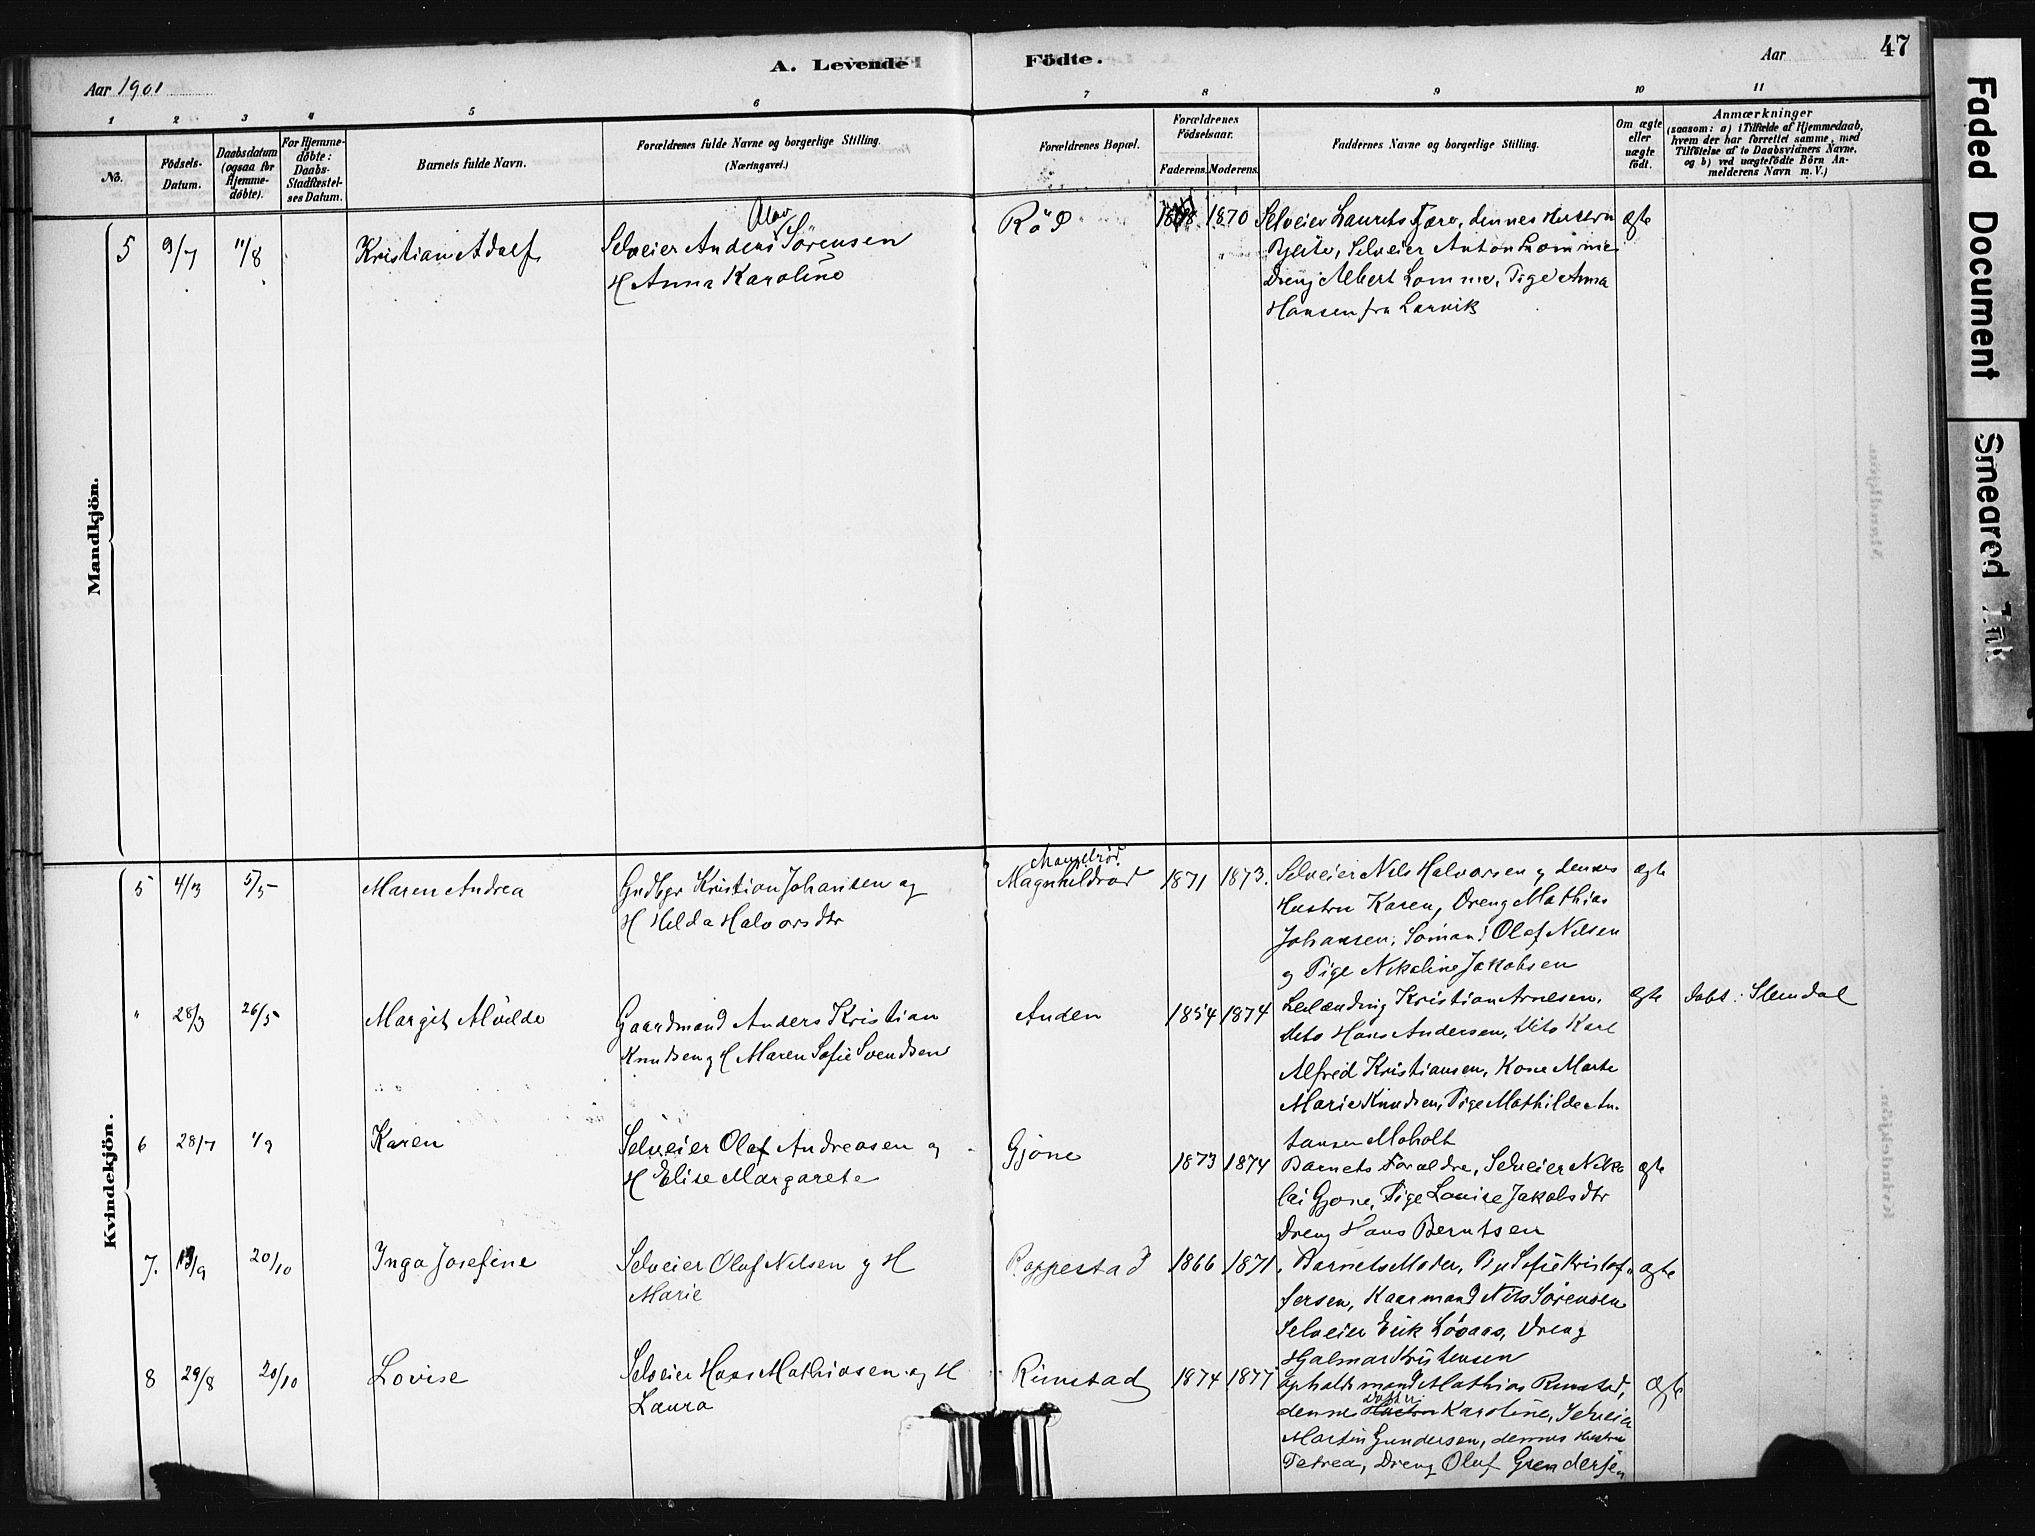 47
Aar 1901
A. Levende Födte.
Aar
1 2 3 4 5 6 7 8 9 10 11
No.
Födsels-Datum.
Daabsdatum (ogsaa for Hjemme-döbte).
For Hjemme-döbte: Daabs-Stadfæstel-ses Datum.
Barnets fulde Navn.
Forældrenes fulde Navne og borgerlige Stilling.
(Næringsvei.)
Forældrenes Bopæl.
Forældrenes Födselsaar.
Faderens. Moderens.
Faddernes Navne og borgerlige Stilling.
Om ægte eller uægte födt.
Anmærkninger
(saasom: a) i Tilfælde af Hjemmedaab,
hvem der har forrettet samme, med
Tilföielse af to Daabsvidners Navne,
og b) ved uægtefödte Börn An-
melderens Navn m.V.)
Mandkjön.
5 9/7 11/8 Kristian Adolf
Olav
Selveier Anders Sörensen
H Anna Karoline
Röd 1870
Selveier Laurits Færo, dennes Hustru
Selveier Anton Lomme
Dreng Albert Lomme, Pige Anna
Hansen fra Larvik
ægte
Kvindekjön.
5 4/3 5/5 Maren Andrea
Grdbgr Kristian Johansen og
H Helda Halvorsdtr
Magnhildrød 1871 1873.
Selveier Nils Halvorsen og dennes
Hustru Karen, Dreng Mathias
Johansen, Sömand Olaf Nilsen
og Pige Nikoline Jakobsen
ægte
" 28/3 26/5 Margit Alvilde
Gaardmand Anders Kristian
Knudsen og H Maren Sofie Svendsen
Anden 1854 1874
Leilænding Kristian Arnesen,
dito Hans Andersen, dito Karl
Alfred Kristiansen, Kone Marte
Marie Knudsen, Pige Mathilde An-
tonsen Moholt
ægte döbt: Slemdal
6 28/7 1/9 Karen
Selveier Olaf Andreasen og
H Elise Margarete
Gjone 1873 1874
Barnets Forældre, Selveier Niko
lai Gjone, Pige Louise Jakobsdtr
Dreng Hans Berntsen
ægte
7. /9 20/10 Inga Josefine
Selveier Olaf Nilsen og H
Marie
Rappestad 1866 1871
Barnets Moder, Pige Sofie Kristof-
fersen, Kaarmand Nils Sörensen
Selveier Erik Lövaas, Dreng
Hjalmar Kristensen
ægte
8 29/8 20/10 Lovise
Selveier Hans Mathiasen og H
Laura
Rimstad 1874 1877
Opholdsmand Mathias Rimstad,
dennes Datter Karoline, Selveier
Martin Gundersen, dennes Hustru
Petrea, Dreng Olaf Gundersen
ægte
Faded Document
Smeared Ink